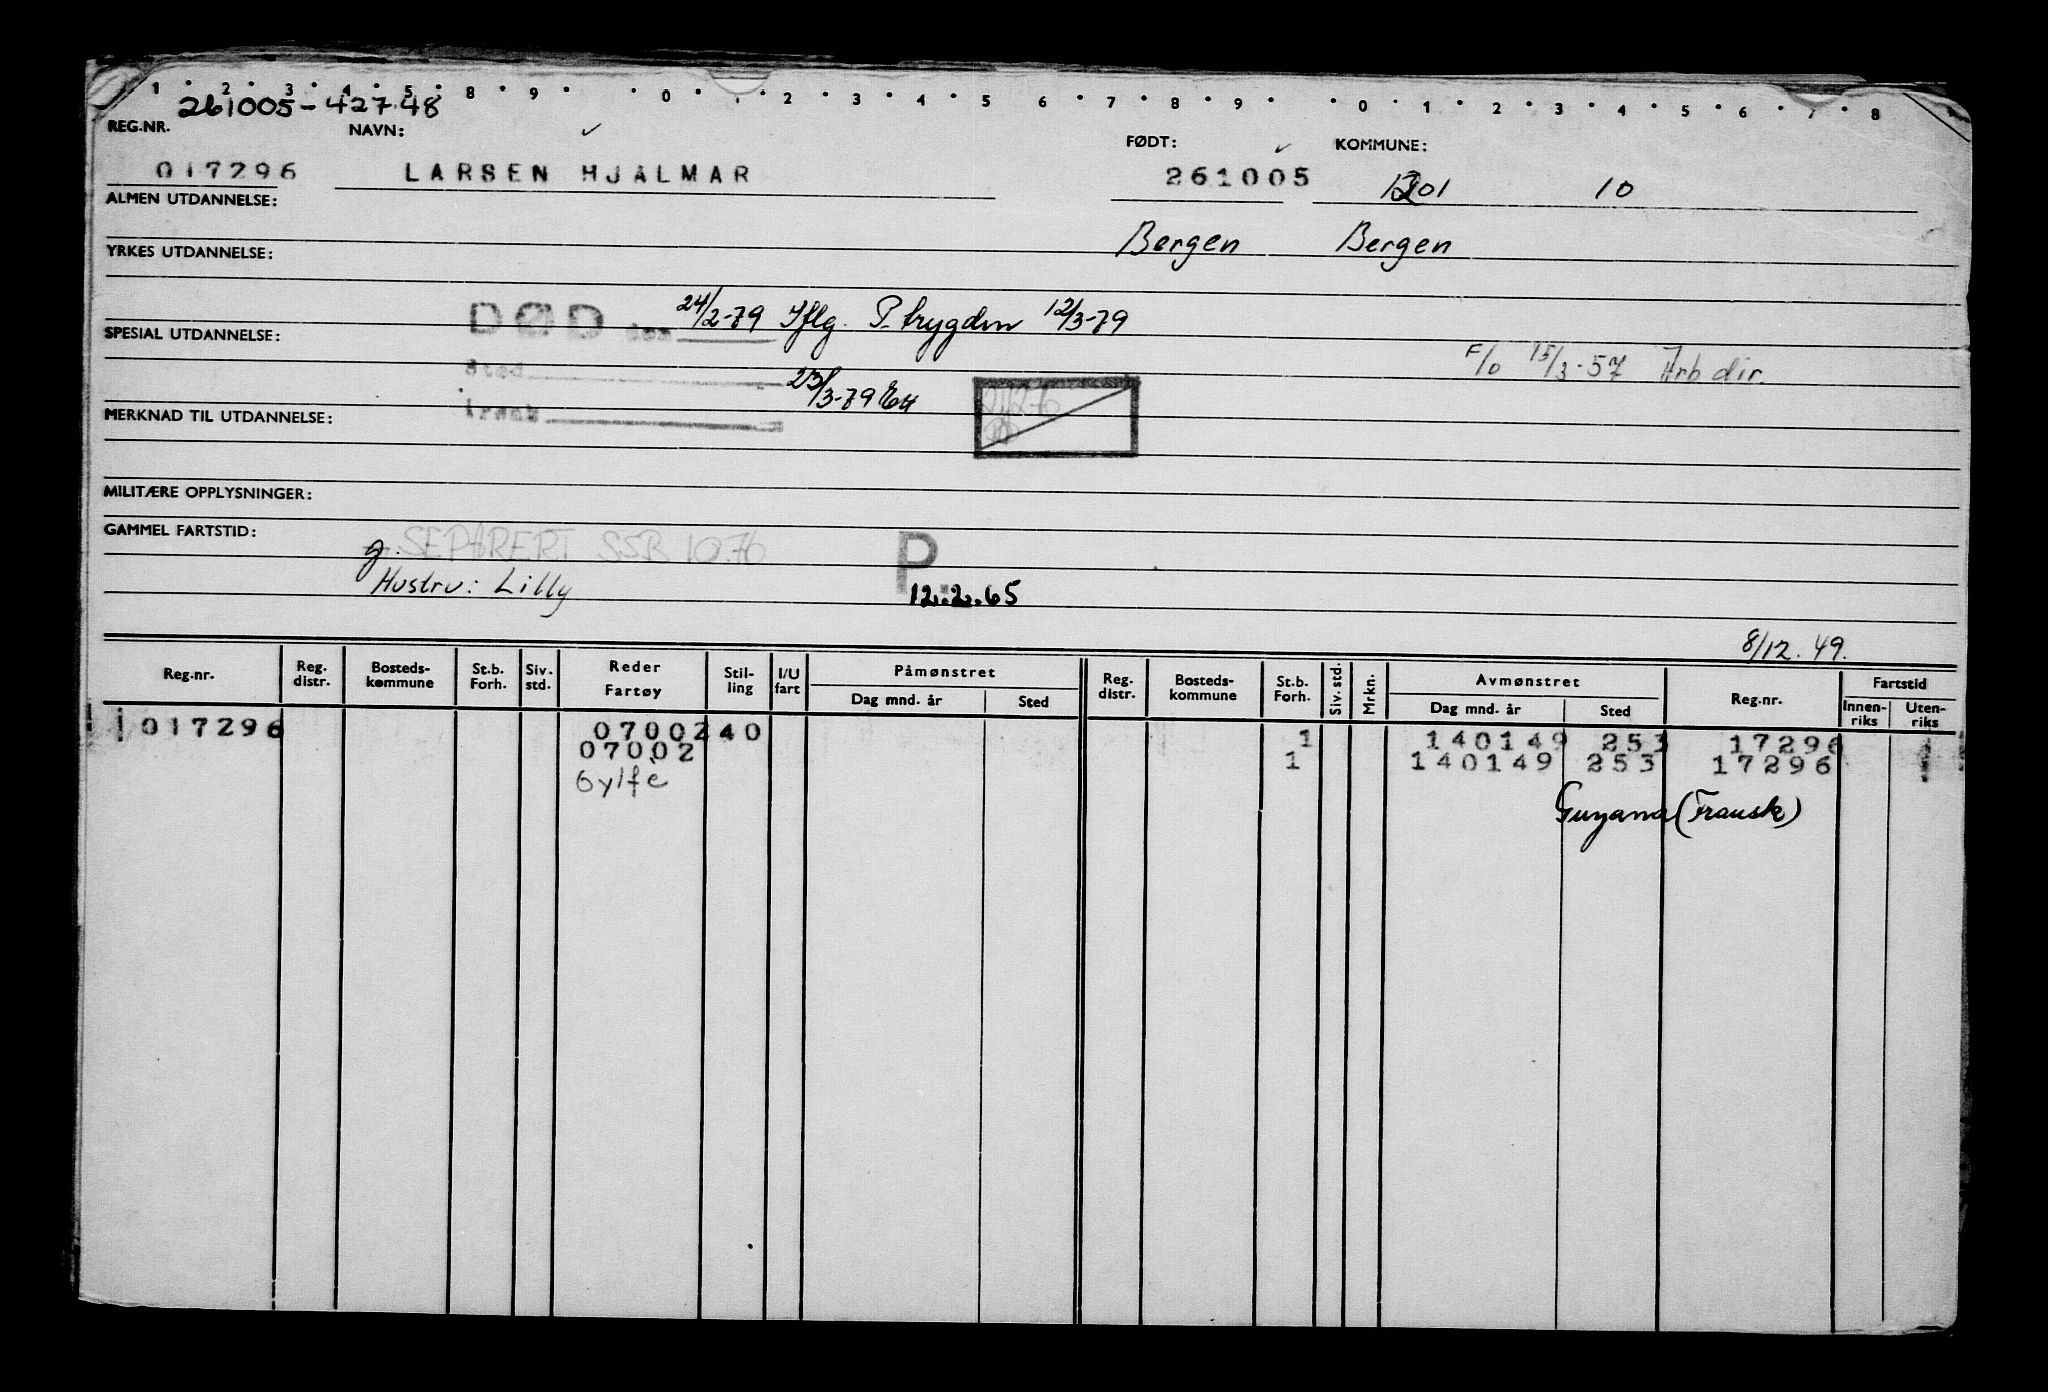 1 2 3 4 5 8 9 0 1 2 3 4 5 6 7 8 9 0 1 2 3 4 5 6 7 8
261005-42748
REG.NR. NAVN: FØDT: KOMMUNE:
017296 LARSEN HJALMAR 261005 1201 10
ALMEN UTDANNELSE:
Bergen Bergen
YRKES UTDANNELSE:
DØD den 24/2-79 Iflg. P.trygden 12/3-79
SPESIAL UTDANNELSE:
F/o 15/3-57 Arb dir.
Sted
23/3-79
MERKNAD TIL UTDANNELSE:
MILITÆRE OPPLYSNINGER:
GAMMEL FARTSTID:
g. SEPARERT SSB 10.76
P.
Hustru: Lilly
12.2.65
8/12.49.
Reg.nr. Reg. distr. Bosteds- kommune St.b. Forh. Siv. std. Reder Fartøy Stil- ling I/U fart Påmønstret Dag mnd. år Sted Reg. distr. Bosteds- kommune St.b. Forh. Siv. std. Mrkn. Avmønstret Dag mnd. år Sted Reg.nr. Fartstid Innen- riks Uten- riks
017296 0700240 1 140149 253 17296
07002 1 140149 253 17296
Gylfe
Guyana (Fransk)